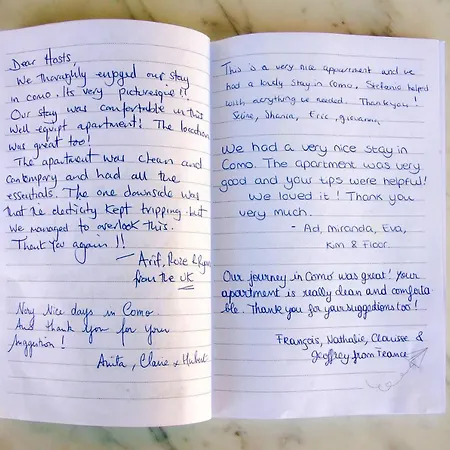 Dear Hosts,
We thoroughly enjoyed our stay
in como. Its very picturesque!!
Our stay was comfortable in this
well equipt apartment! The location
was great too!
The apartment was clean and
contempory and had all the
essentials. The one downside was
that the electicity kept tripping but
we managed to overlook this.
Thank you again!!
– Arif, Roze &
from the UK
Very Nice days in Como.
And thank you for your
suggestion!
Anita, Claire & Hubert
This is a very nice appartment and we
had a lovely stay in Como. Stefania helped
with everything we needed. Thank you!
Shania, Eric, giovanni
We had a very nice stay in
Como. The apartment was very
good and your tips were helpful!
We loved it! Thank you
very much.
- Ad, Miranda, Eva,
Kim & Floor.
Our journey in Como was great! Your
apartment is really clean and comforta
ble. Thank you for your suggestions too!
François, Nathalie, Clarisse &
Geoffrey from France